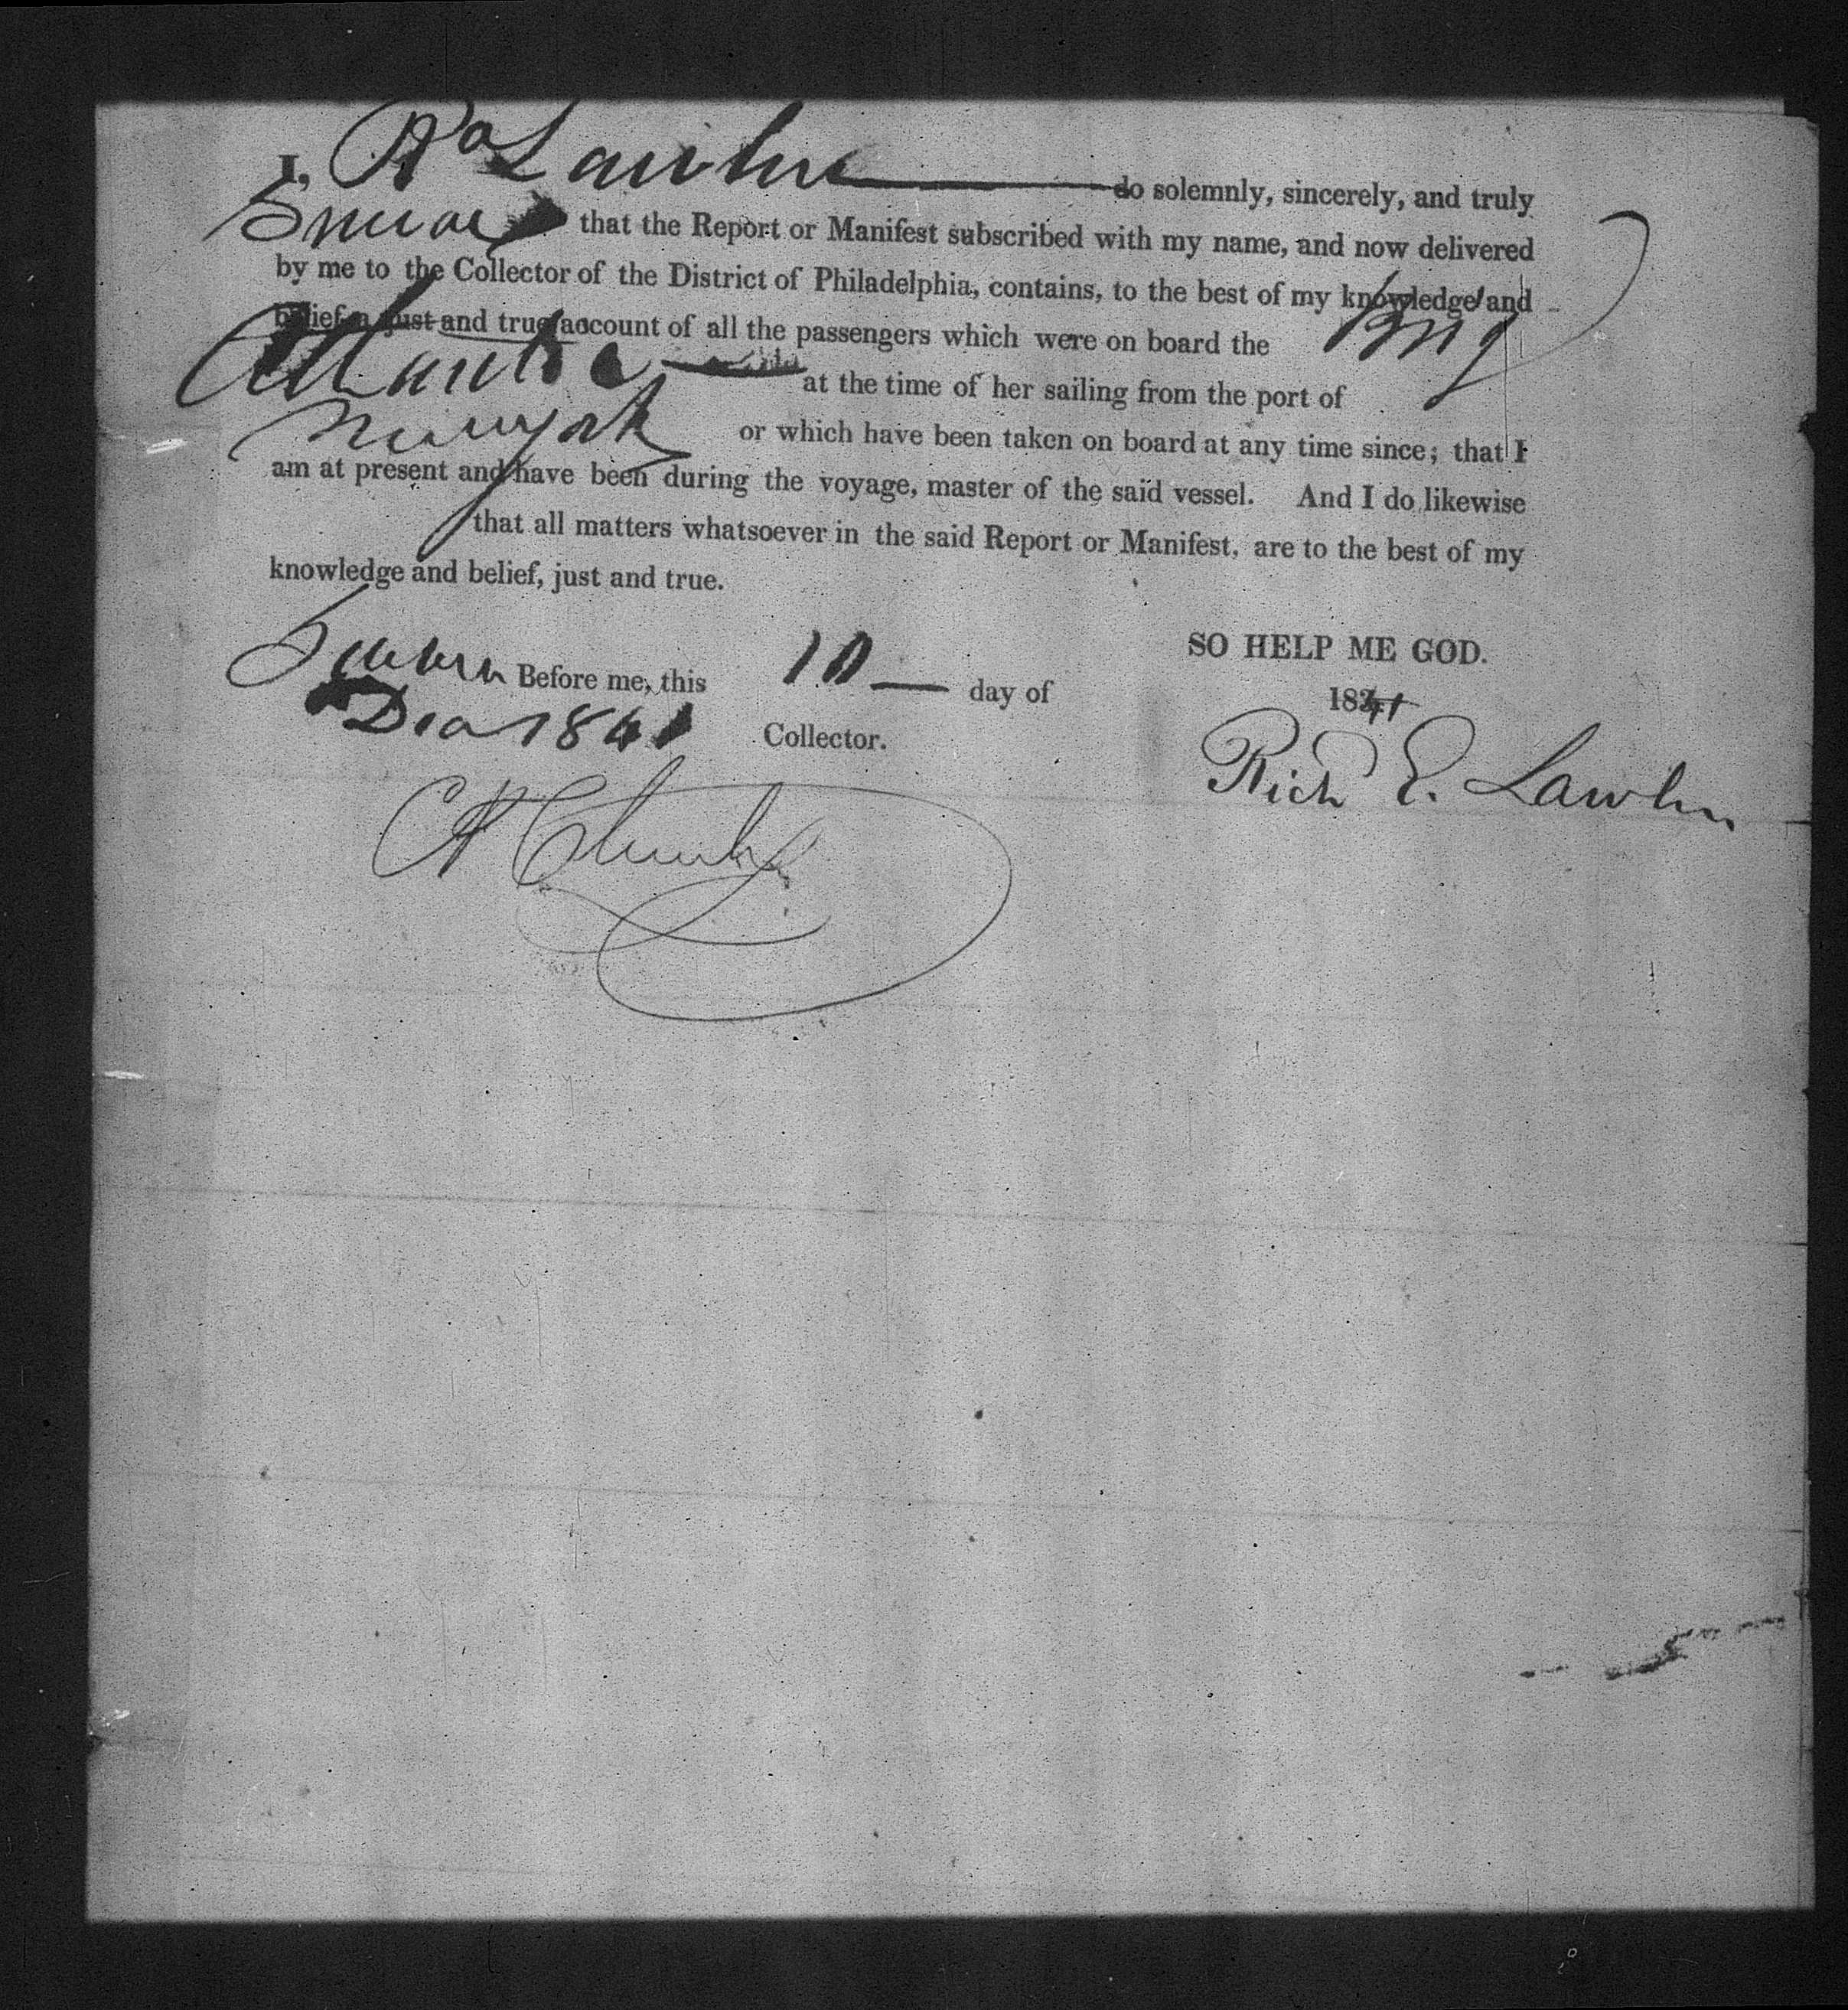 I, Rd Lawlin do solemnly, sincerely, and truly
Swear that the Report or Manifest subscribed with my name, and now delivered
by me to the Collector of the District of Philadelphia, contains, to the best of my knowledge and
belief a just and true account of all the passengers which were on board the Brig
at the time of her sailing from the port of
New york or which have been taken on board at any time since; that I
am at present and have been during the voyage, master of the said vessel. And I do likewise
that all matters whatsoever in the said Report or Manifest, are to the best of my
knowledge and belief, just and true.
SO HELP ME GOD.
Before me, this 10 day of 1841
Dec 1841 Collector.
Rich E. Lawlin